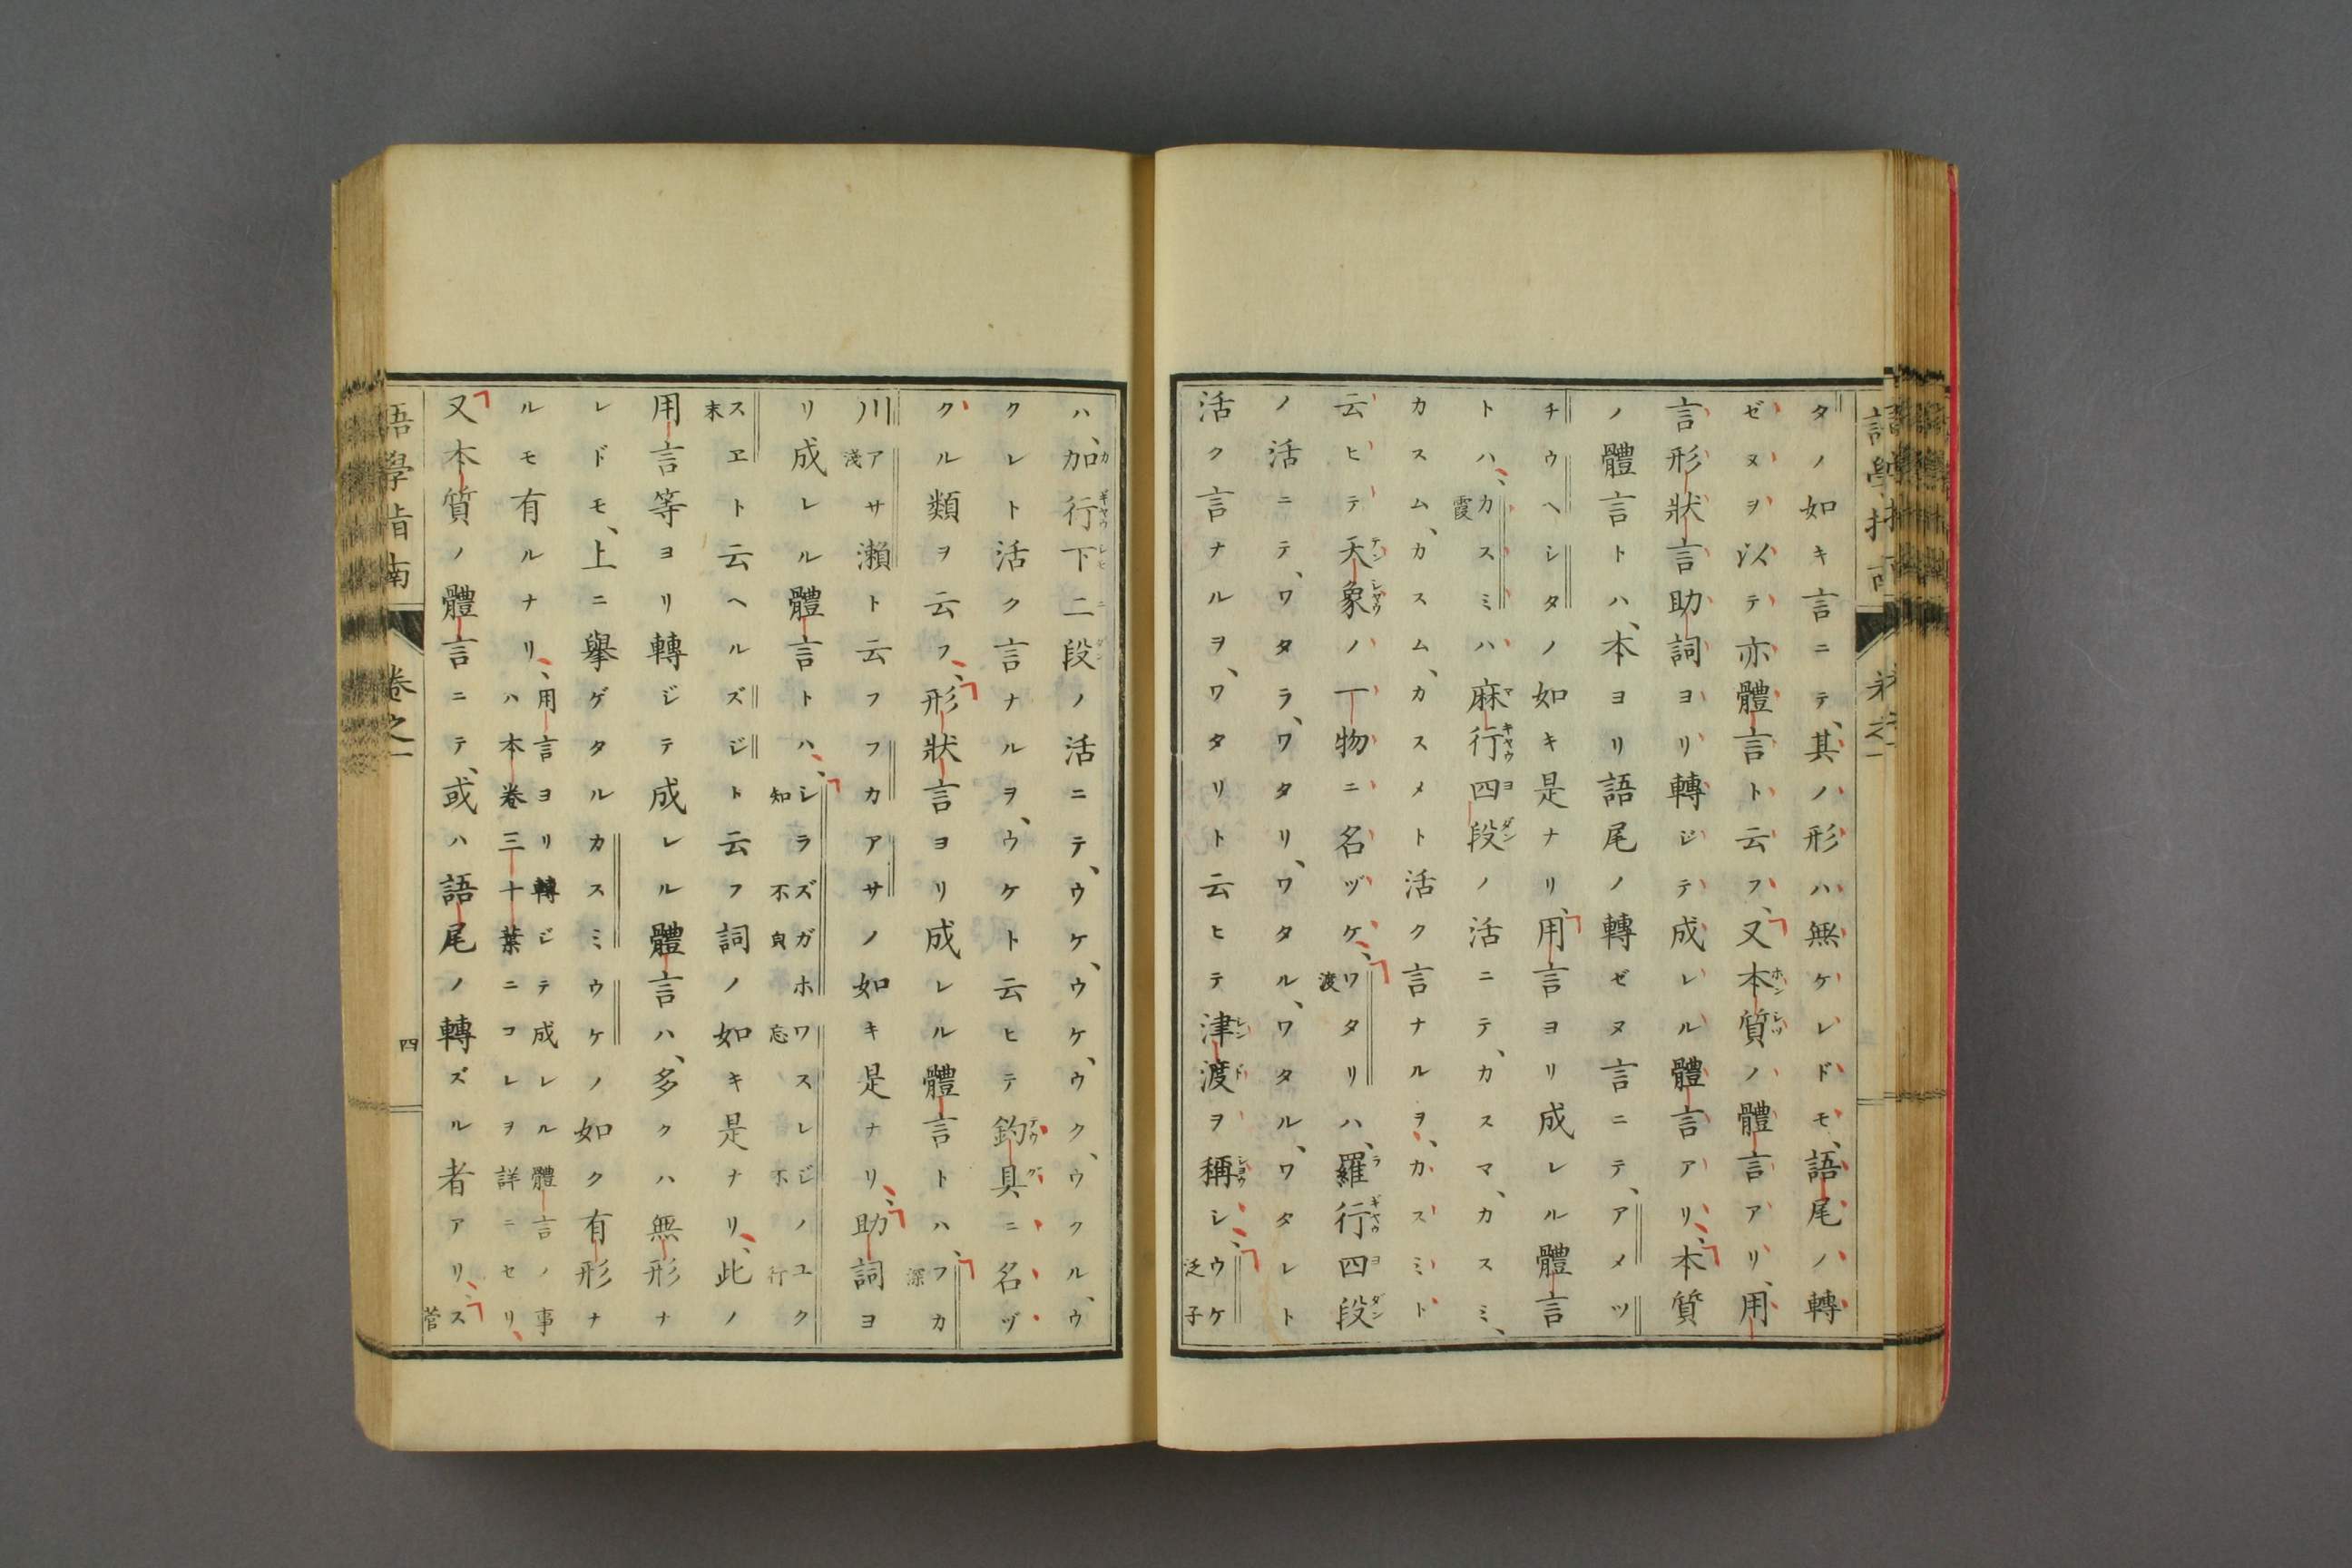 タノ如キ言ニテ、其ノ形ハ無ケレドモ、語尾ノ轉
ゼヌヲ以テ亦體言ト云フ、又本質ノ體言アリ、用
言形狀言助詞ヨリ轉ジテ成レル體言アリ、本質
ノ體言トハ、本ヨリ語尾ノ轉ゼヌ言ニテ、アメツ
チウヘシタノ如キ是ナリ、用言ヨリ成レル體言
トハ、カスミ霞ハ麻行四段ノ活ニテ、カスマ、カスミ、
カスム、カスム、カスメト活ク言ナルヲ、カスミト
云ヒテ天象ノ一物ニ名ヅケ、ワタリ渡ハ、羅行四段
ノ活ニテ、ワタラ、ワタリ、ワタル、ワタル、ワタレト
活ク言ナルヲ、ワタリト云ヒテ津渡ヲ稱シ、ウケ泛子
ハ、加行下二段ノ活ニテ、ウケ、ウケ、ウク、ウクル、ウ
クレト活ク言ナルヲ、ウケト云ヒテ釣具ニ名ヅ
クル類ヲ云フ、形狀言ヨリ成レル體言トハ、フカ深
川アサ淺瀨ト云フフカアサノ如キ是ナリ、助詞ヨ
リ成レル體言トハ、シラズガホ知不貌ワスレジノユク忘不行
スヱ末ト云ヘルズジト云フ詞ノ如キ是ナリ、此ノ
用言等ヨリ轉ジテ成レル體言ハ、多クハ無形ナ
レドモ、上ニ擧ゲタルカスミウケノ如ク有形ナ
ルモ有ルナリ、用言ヨリ轉ジテ成レル體言ノ事
ハ本卷三十葉ニコレヲ詳ニセリ、
又本質ノ體言ニテ、或ハ語尾ノ轉ズル者アリ、ス菅
語學指南
卷之一
四